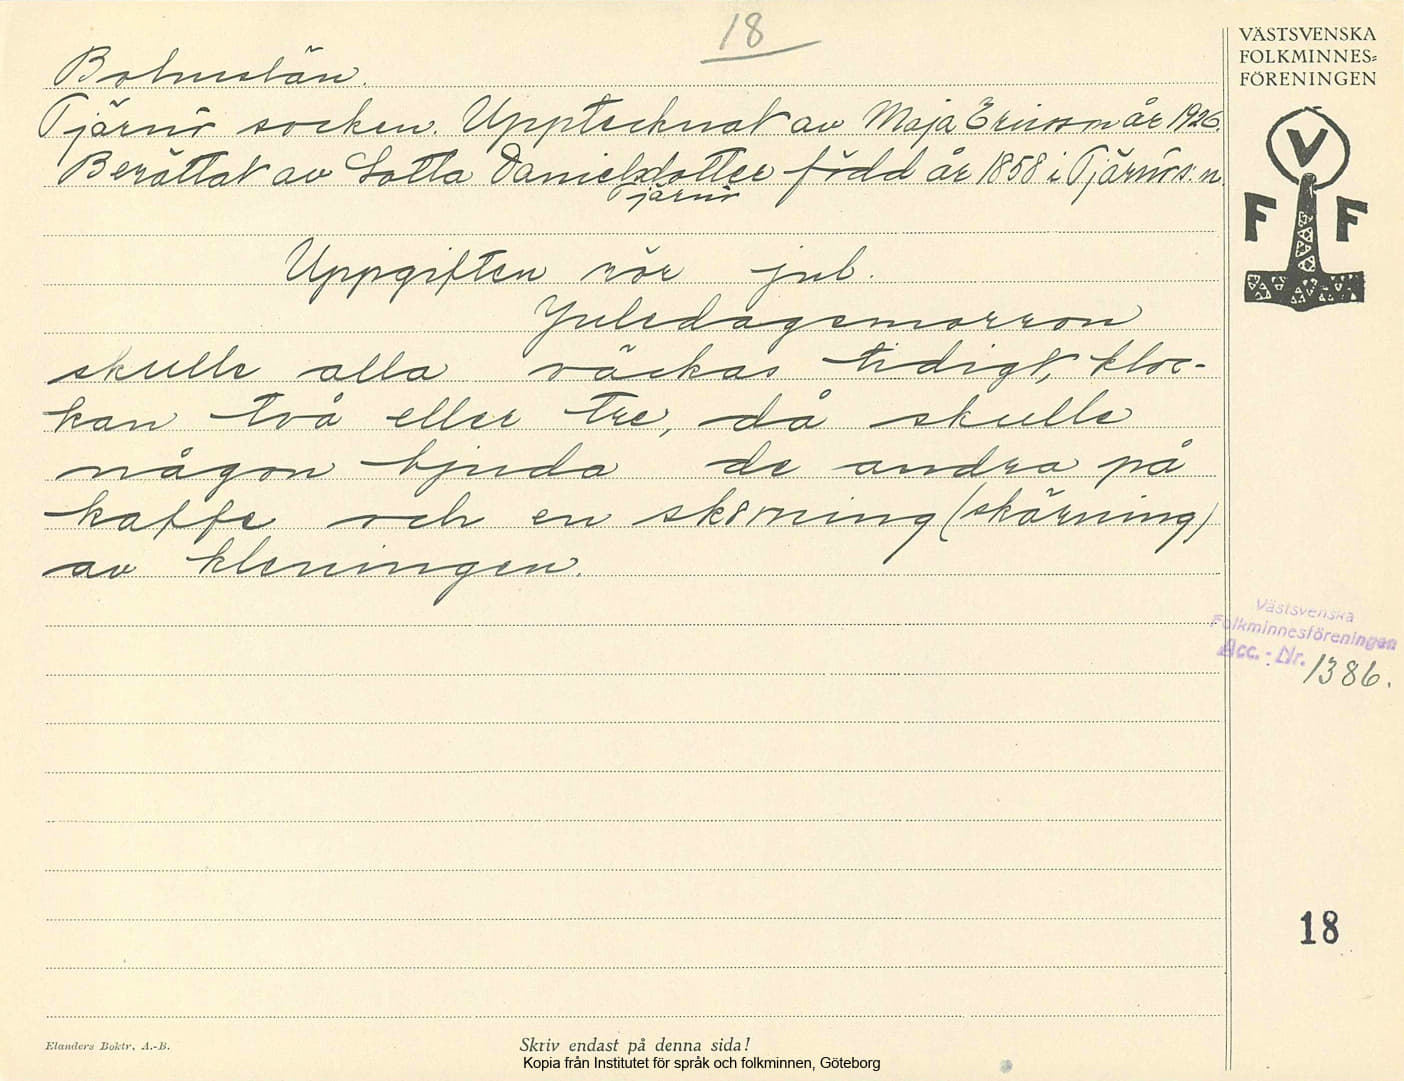 18
Bohuslän.
Tjärnö socken. Upptecknat av Maja Ericsson år 1926.
Berättat av Lotta Danielsdotter född år 1858 i Tjärnö s:n.
Tjärnö
Uppgiften rör jul.
Juledagsmorron
skulle alla väckas tidigt, kloc-
kan två eller tre, då skulle
någon bjuda de andra på
kaffe och en skörning (skärning)
av kleningen.
VÄSTSVENSKA
FOLKMINNES=
FÖRENINGEN
V
F F
Västsvenska
Folkminnesföreningen
Acc. - Nr. 1386.
18
Elanders Boktr. A.-B.
Skriv endast på denna sida!
Kopia från Institutet för språk och folkminnen, Göteborg